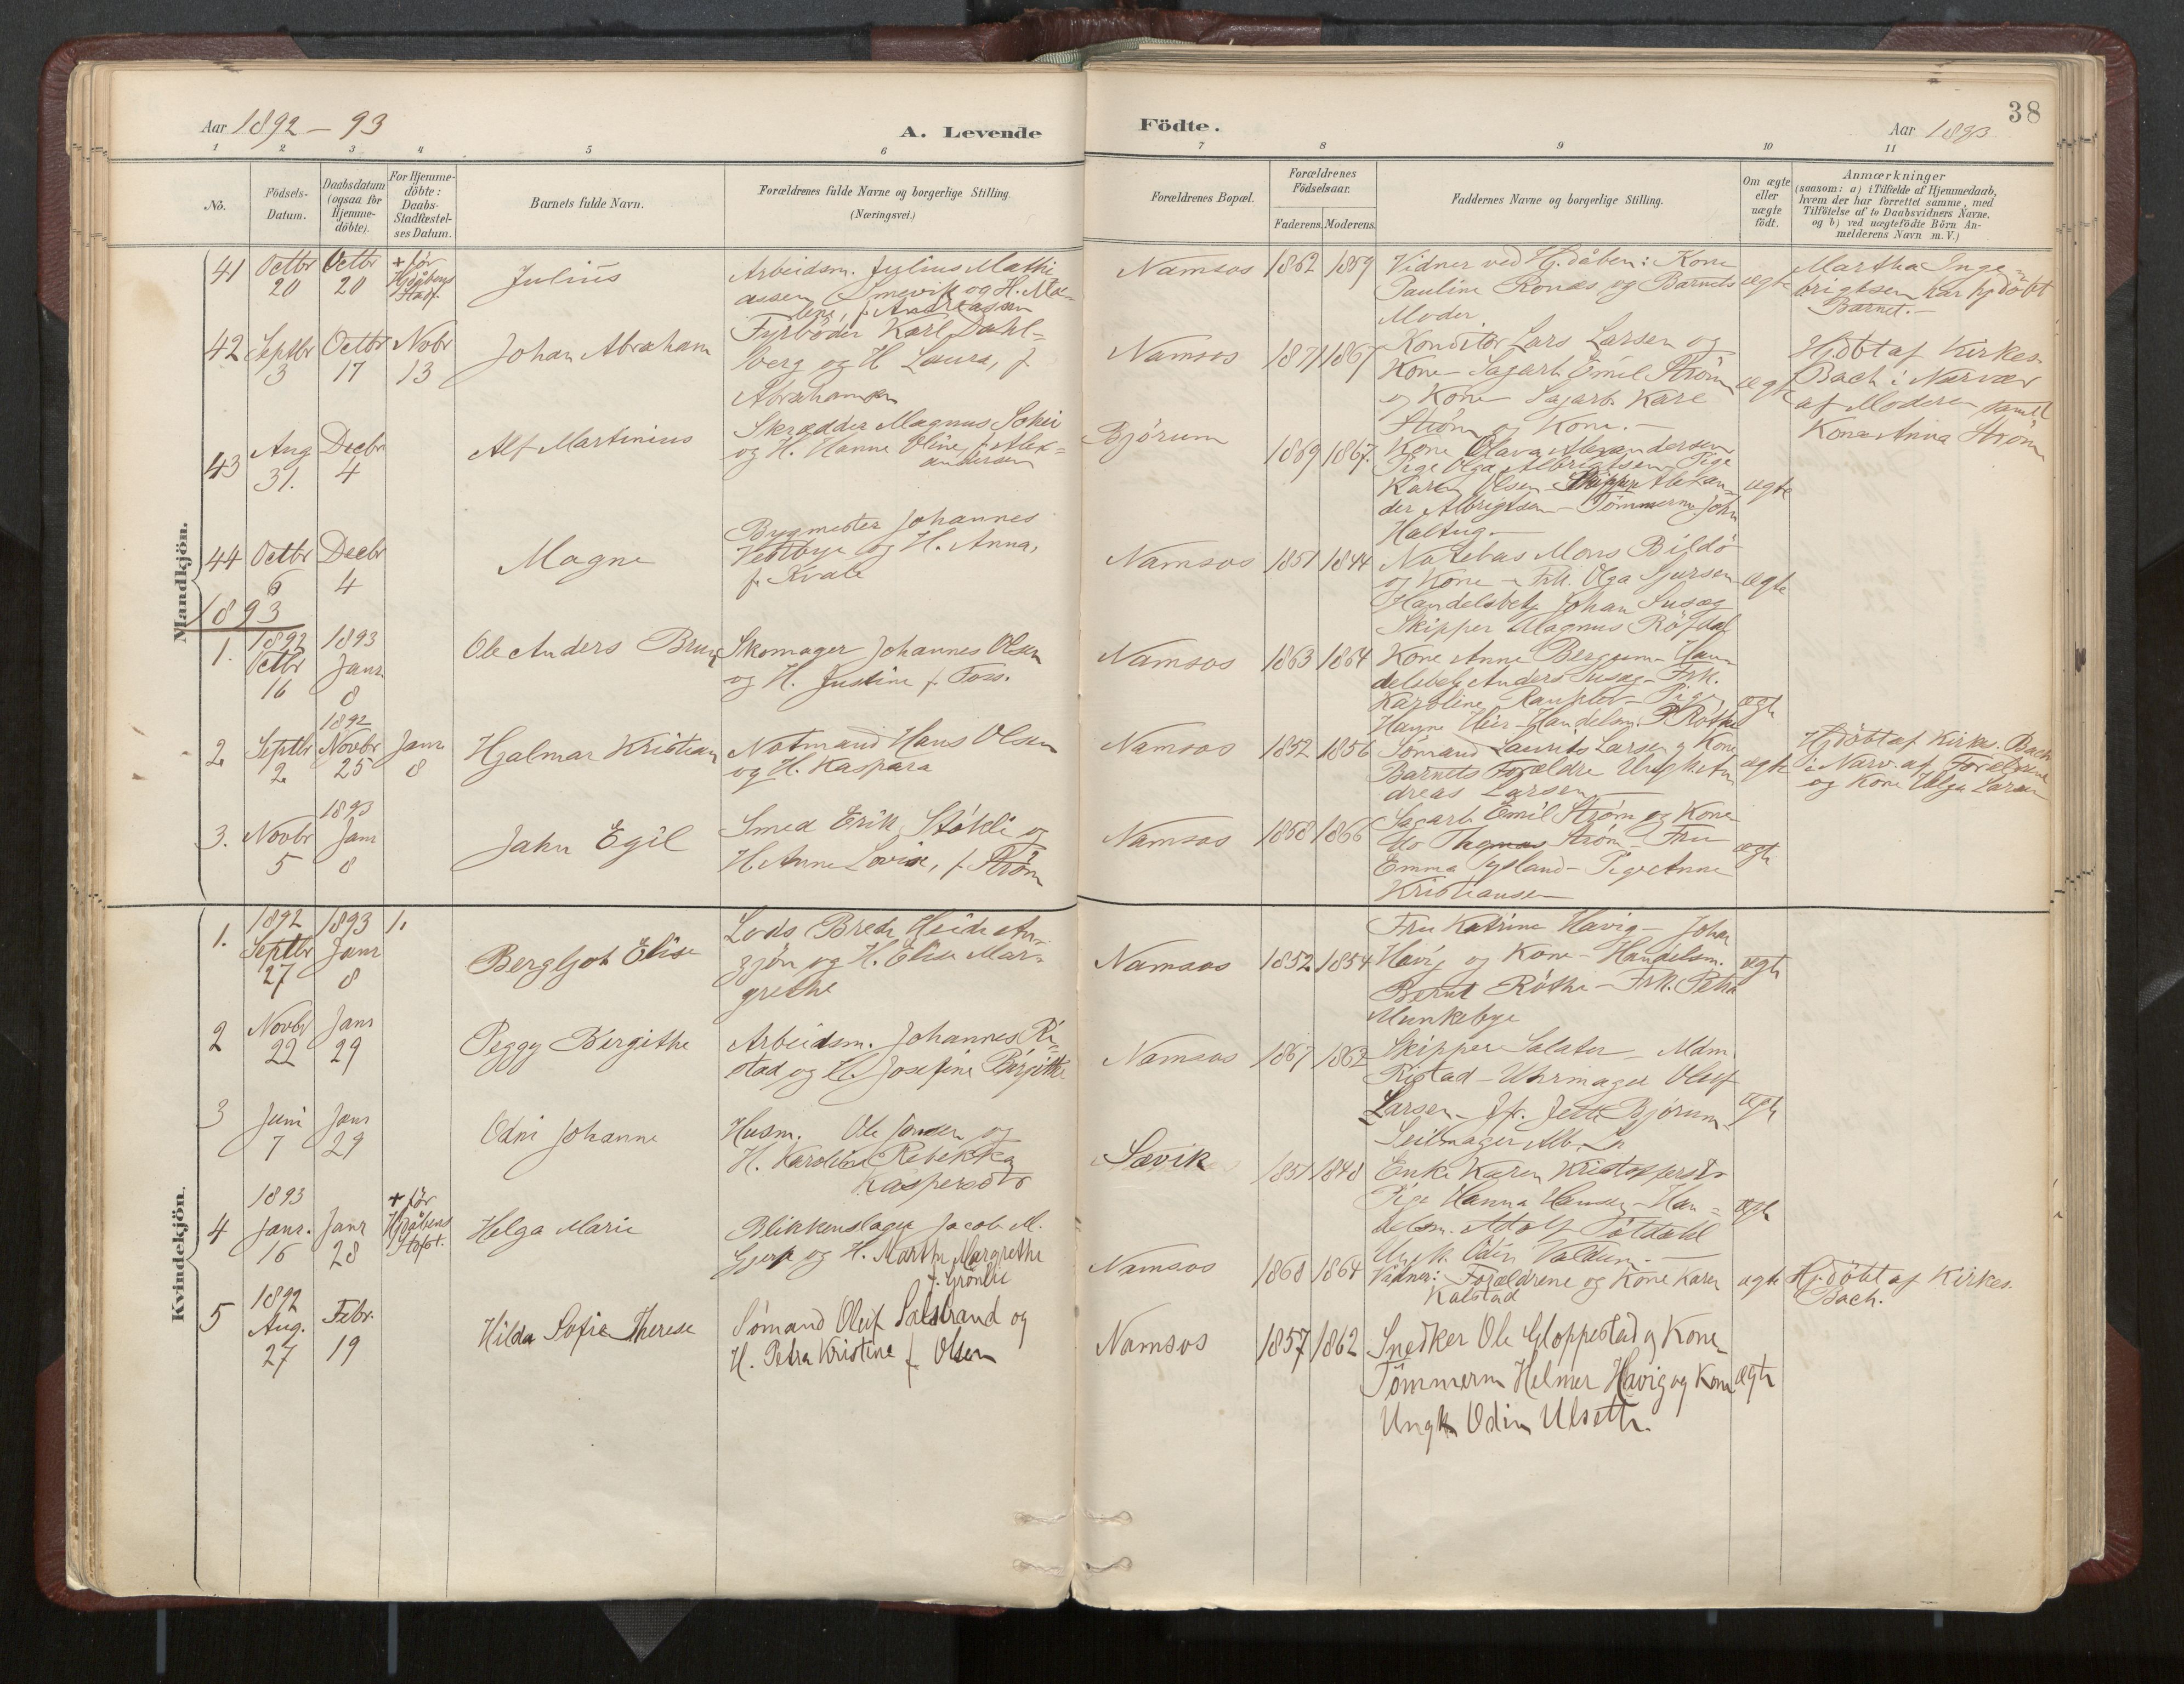 Aar 1892 - 93
A. Levende
Födte.
Aar 1893
38
1 2 3 4 5 6 7 8 9 10 11
No.
Födsels-
Datum.
Daabsdatum
(ogsaa for
Hjemme-
döbte).
For Hjemme-
döbte:
Daabs-
Stadfæstel-
ses Datum.
Barnets fulde Navn.
Forældrenes fulde Navne og borgerlige Stilling.
(Næringsvei.)
Forældrenes Bopæl.
Forældrenes
Födselsaar.
Faderens. Moderens.
Faddernes Navne og borgerlige Stilling.
Om ægte
eller
uægte
født.
Anmærkninger
(saasom: a) i Tilfælde af Hjemmedaab,
hvem der har forrettet samme, med
Tilföielse af to Daabsvidners Navne,
og b) ved uægtefödte Börn An-
melderens Navn m. V.)
Mandkjön.
41
Octbr
20
Octbr
20
+ før
Hjdåbens
Stadf.
Julius
Arbeidsm. Julius Mathi
assen Smevik og H.
f. Andreassen
Namsos
1862 1859
Vidner ved Hj.dåben: Kone
Pauline Ronæs og Barnets
Moder
ægte
Martha Inge-
brigtsen har hjdöbt
Barnet.-
42
Septbr
3
Octbr
17
Novbr
13
Johan Abraham
Fyrbøder Karl Dahl-
berg og H. Laura, f.
Abrahamsen
Namsos
1871 1867
Konditor Lars Larsen og
Kone - Sagarb. Emil Strøm
og Kone Sagarb. Karl
Strøm og Kone. -
ægte
Hjdöbt af Kirkes.
Bach i Nærvær
af Moderen samt
Kone Anna Strøm
43
Aug
31.
Decbr
4
Alf Martinius
Skrædder Magnus
og H. Hanne Oline, f. Alex-
andersen
Bjørum
1869 1867.
Kone Olava Alexandersen
Pige Olga Albrigtsen - Pige
Karen Olsen - Skipper Alexan-
der Albrigtsen - Tömmerm John
Haltug -
ægte
44
Octbr
6
Decbr
4
Magne
Bygmester Johannes
Vestbye og H. Anna,
f. Kvale
Namsos
1851 1844
Notebas Mons Bildö
og Kone - Frk. Olga Sjursen
Handelsbetj Johan Susæg
Skipper Magnus
ægte
1893
1.
1892
Octbr
16
1893
Janr
8
Ole Anders Brun
Skomager Johannes Olsen
og H. Justine f. Foss.
Namsos
1863 1864
Kone Anne Bergum - Han-
delsbetj Anders Susæg - Frk.
Karoline - Pige
Hanne Heir - Handelsm. P. Röthe
ægte
2.
Septbr
2.
1892
Novbr
25
Janr
8
Hjalmar Kristian
Notmand Hans Olsen
og H. Kaspara
Namsos
1852 1856
Sömand Laurits Larsen og Kone
Barnets Forældre Ungk. An
dreas Larsen
ægte
Hjdöbt af Kirkes. Bach
i Nærv. af Forældrene
og Kone Helga Larsen
3.
Novbr
5
1893
Jan
8
Jahn Egil
Smed Erik Stökli og
H. Anne Lovise, f. Strøm
Namsos
1858 1866
Sagarb. Emil Strøm og Kone
Thomas Strøm - Fru
Emma Tysland - Pige Anne
Kristiansen
ægte
Kvindekjön.
1.
1892
Septbr
27
1893
Janr
8
1.
Bergljot Elise
Lods Brede Heide
og H. Elise Mar-
grethe
Namsos
1852 1854
Fru Katrine Havig - Johan
Havig og Kone - Handelsm.
Bernt Röthe - Frk. Petra
Munkebye
ægte
2
Novbr
22
Janr
29
Peggy Birgithe
Arbeidsm. Johannes Ri-
stad og H. Josefine Birgitte
Namsos
1867 1862
Skipper Salater - Mdm
Ristad - Uhrmager Oluf
Larsen - Jfr. Jette Bjørum -
Seilmager Alb.
ægte
3
Juni
7
Janr
29
Odni Johanne
Husm. Ole og
H. Karoline Rebekka
Kaspersdtr
Sævik
1851 1848
Enke Karen Kristoffersdtr
Pige Hanna Hansen - Han-
delsm. Adolf
Ungk. Odin
ægte
4
1893
Janr.
16
Janr
28
+ før
Hjdåbens
Stadf.
Helga Marie
Blikkenslager Jacob M.
og H. Marth Margrethe
f. Grönlie
Namsos
1868 1864
Vidner: Forældrene og Kone Karen
Kalstad
ægte
Hjdöbt af Kirkes.
Bach.
5
1892
Aug.
27
Febr.
19
Hilda Sofie Therese
Sømand Oluf Salstrand og
H. Petra Kristine f. Olsen
Namsos
1857 1862
Snedker Ole Gloppestad og Kone -
Tömmerm Helmer Havig og Kone
Ungk Odin Ulseth.
ægte